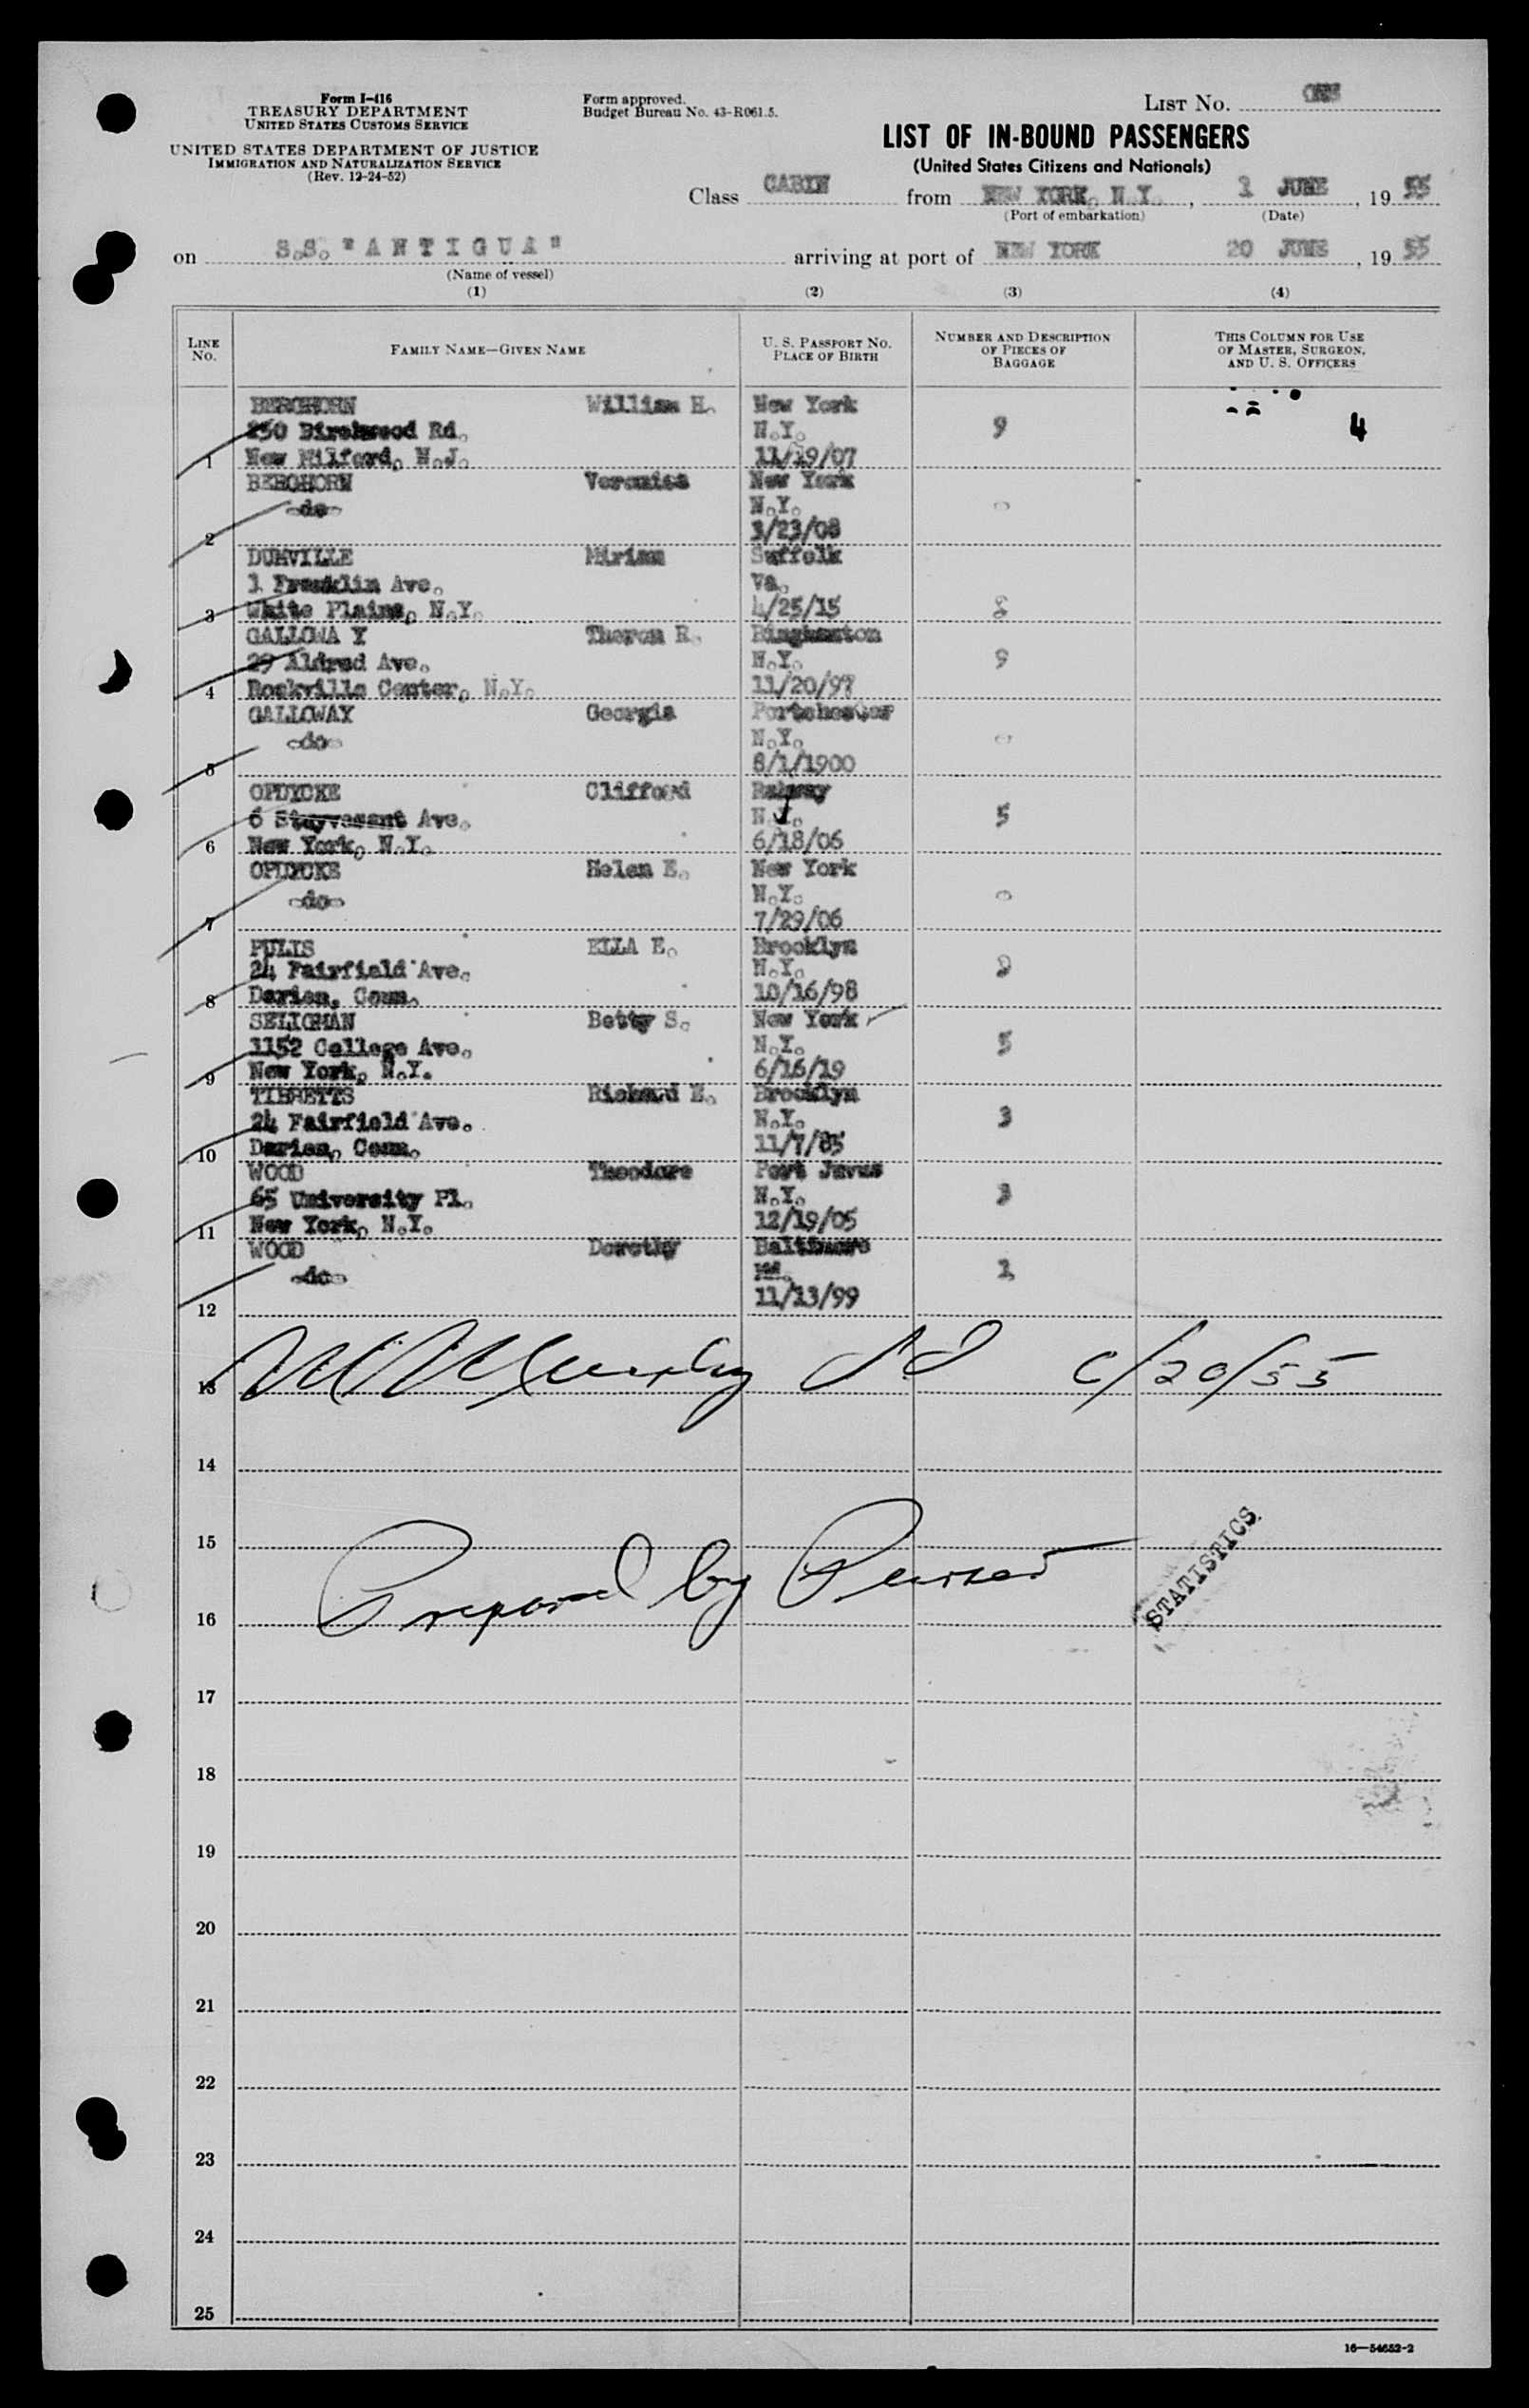 Form I-416
TREASURY DEPARTMENT
UNITED STATES CUSTOMS SERVICE
UNITED STATES DEPARTMENT OF JUSTICE
IMMIGRATION AND NATURALIZATION SERVICE
(Rev. 12-24-52)
Form approved.
Budget Bureau No. 43-R061.5.
LIST NO. ONE
LIST OF IN-BOUND PASSENGERS
(United States Citizens and Nationals)
Class CABIN from NEW YORK, N.Y., 1 JUNE, 19 55
(Port of embarkation) (Date)
on S.S. "ANTIGUA" arriving at port of NEW YORK 20 JUNE, 19 55
(Name of vessel)
(1) (2) (3) (4)
LINE NO. FAMILY NAME—GIVEN NAME U. S. PASSPORT NO. PLACE OF BIRTH NUMBER AND DESCRIPTION OF PIECES OF BAGGAGE THIS COLUMN FOR USE OF MASTER, SURGEON, AND U. S. OFFICERS
BERGHORN William H. New York
250 Birchwood Rd. N.Y. 9 4
1 New Milford, N.J. 11/19/07
BERGHORN Veronica New York
-do- N.Y. -
2 3/23/08
DUMVILLE Miriam Suffolk
1 Franklin Ave. Va.
3 White Plains, N.Y. 4/25/15 2
GALLOWA Y Theron R. Binghamton
29 Aldred Ave. N.Y. 9
4 Rockville Center, N.Y. 11/20/97
GALLOWAY Georgia Portchester
-do- N.Y. -
5 8/1/1900
OPDYCKE Clifford Rahway
6 Stuyvesant Ave. N.J. 5
6 New York, N.Y. 6/18/06
OPDYCKE Helen E. New York
-do- N.Y. -
7 7/29/06
PULIS ELLA E. Brooklyn
24 Fairfield Ave. N.Y. 2
8 Darien, Conn. 10/16/98
SELIGMAN Betty S. New York
1152 College Ave. N.Y. 5
9 New York, N.Y. 6/16/19
TIBBETTS Richard E. Brooklyn
24 Fairfield Ave. N.Y. 3
10 Darien, Conn. 11/7/85
WOOD Theodore Port Jervis
65 University Pl. N.Y. 3
11 New York, N.Y. 12/19/05
WOOD Dorothy Baltimore
-do- Md. 1
12 11/13/99
13 6/20/55
14
15
Prepared by Purser
STATISTICS
16
17
18
19
20
21
22
23
24
25
16—54652-2